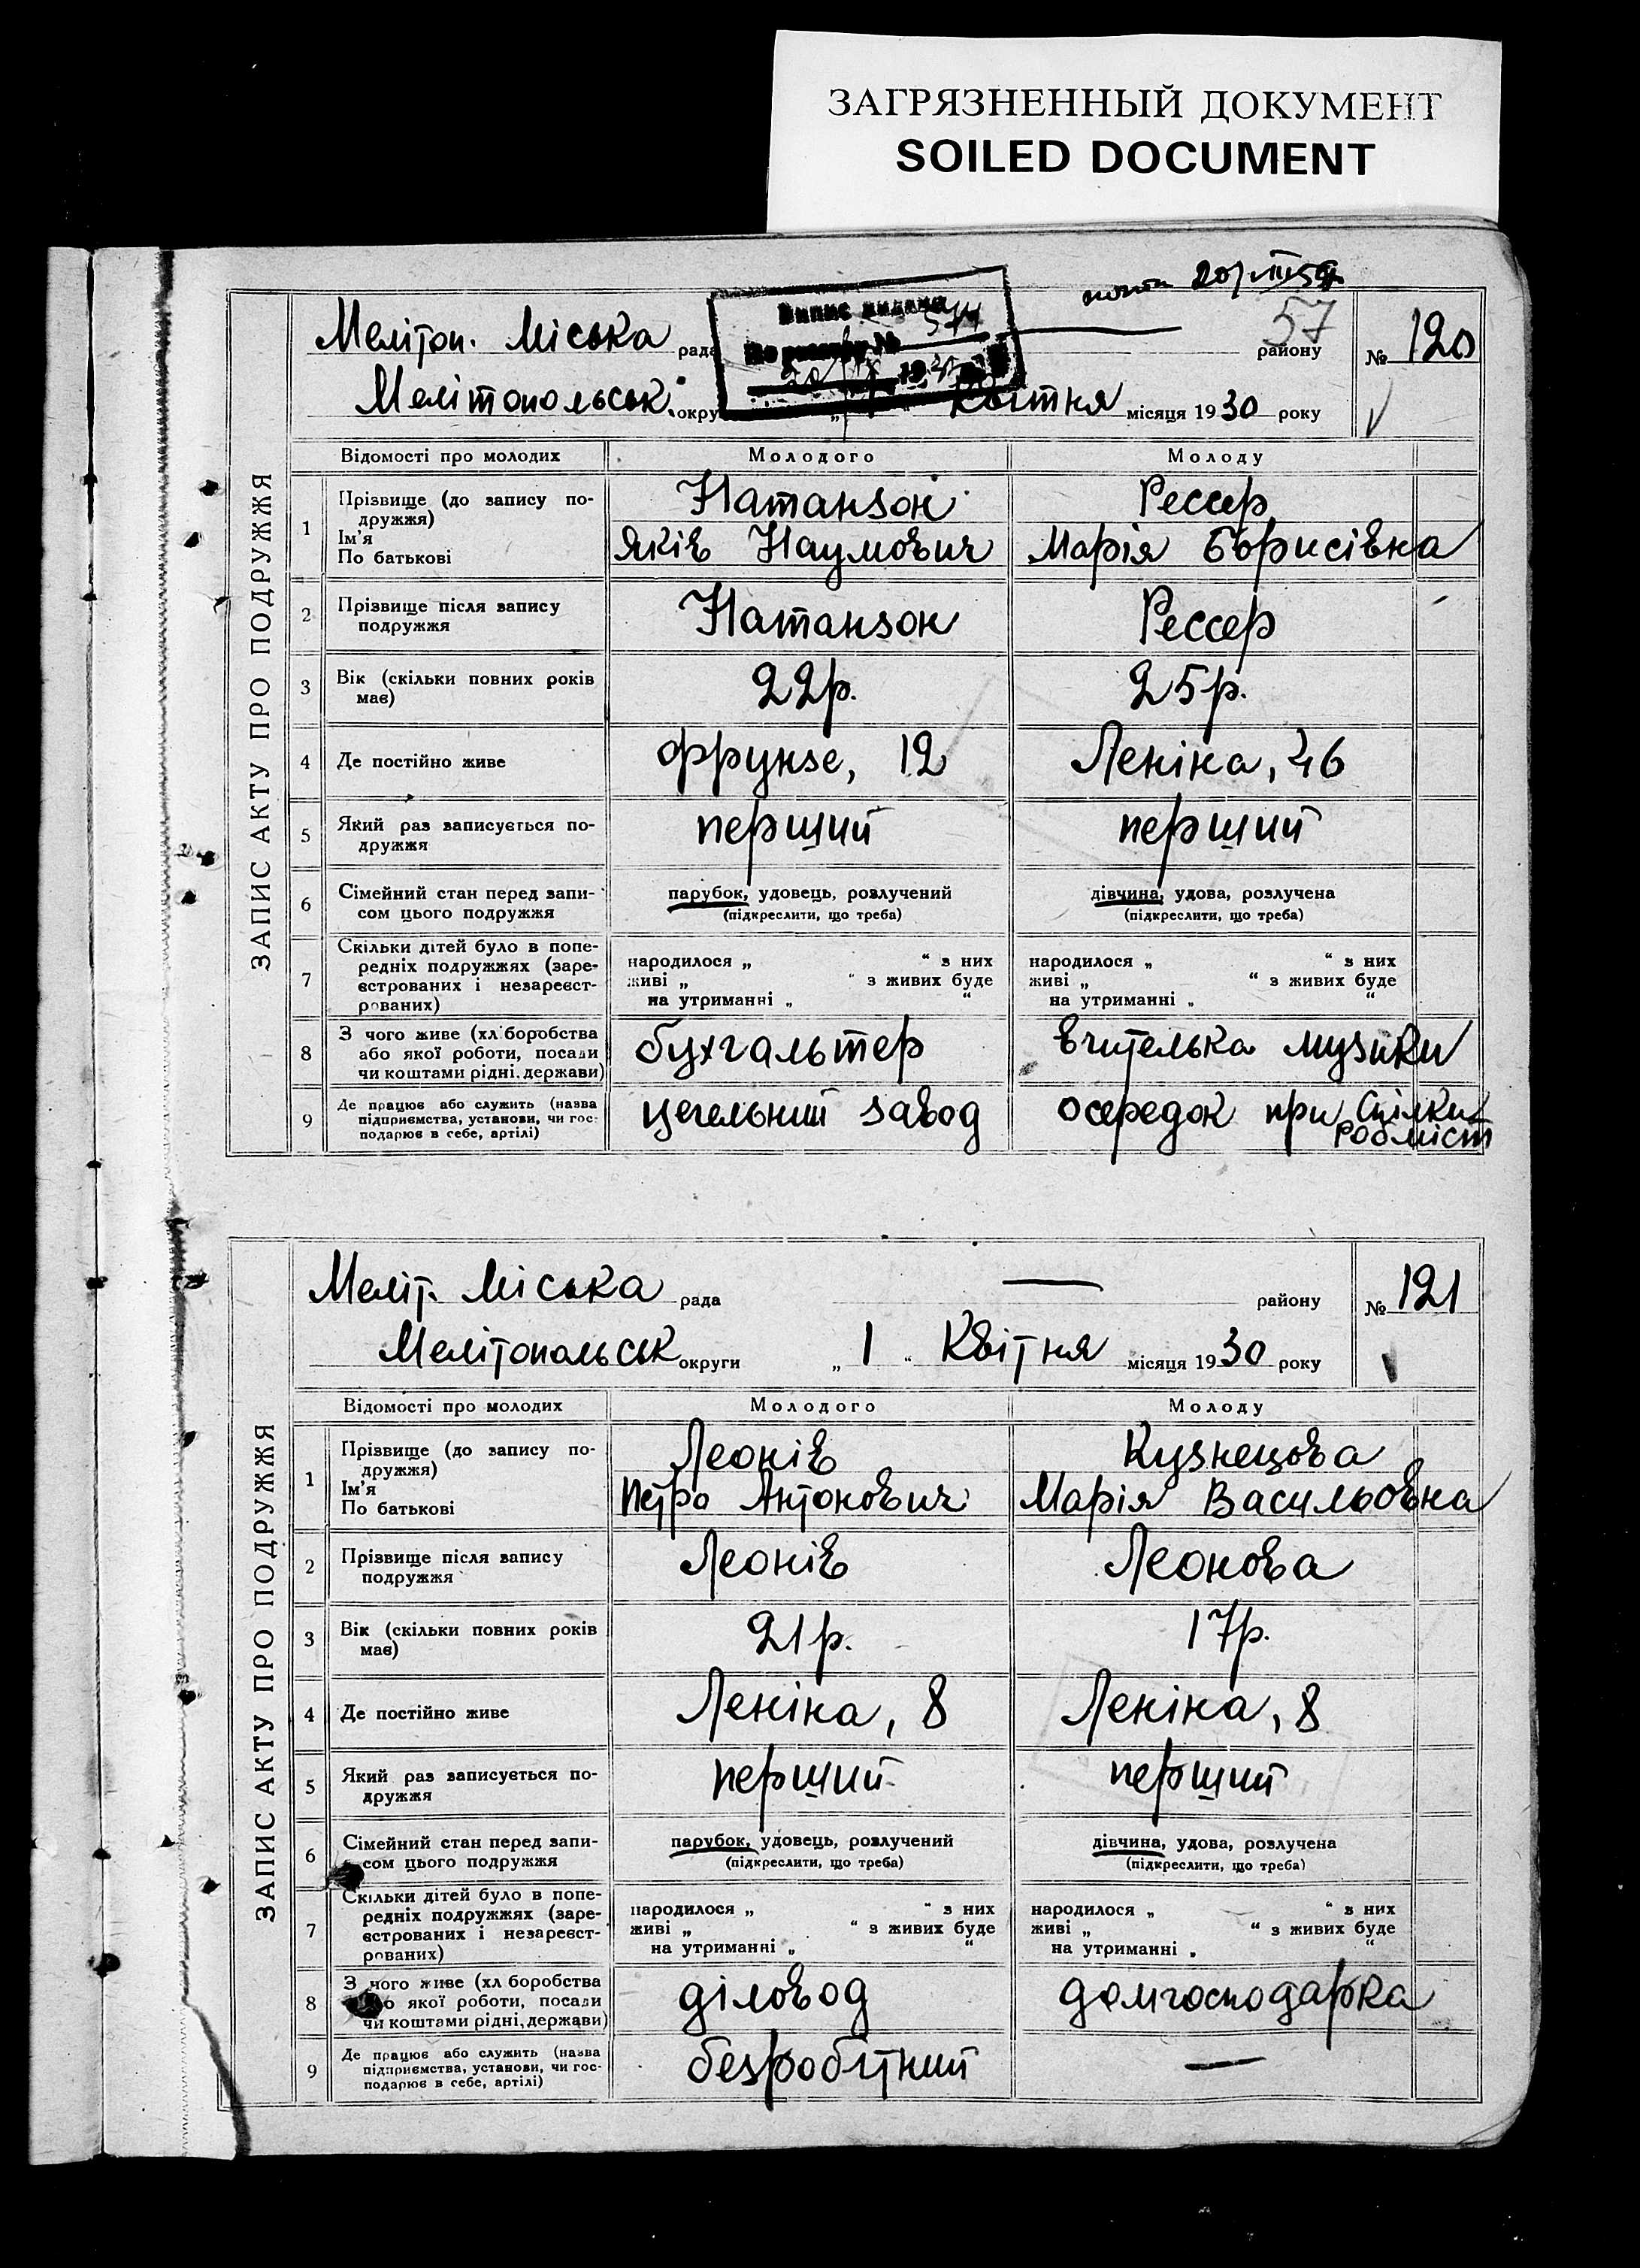 ЗАГРЯЗНЕННЫЙ ДОКУМЕНТ
SOILED DOCUMENT
ЗАПИС АКТУ ПРО ПОДРУЖЖЯ
57
Меліточ. Міська рада району № 120
Мелітопольськ. окру Квітня місяця 1930 року
Випис видано
По реєстру № 544
Відомості про молодих Молодого Молоду
1 Прізвище (до запису по-
дружжя)
Ім'я
По батькові
Натанзон Рессер
Яків Наумович Марія Борисівна
2 Прізвище після запису
подружжя
Натанзон Рессер
3 Вік (скільки повних років
має)
22р. 25р.
4 Де постійно живе Фрунзе, 12 Леніна, 46
5 Який раз записується по-
дружжя
перший перший
6 Сімейний стан перед запи-
сом цього подружжя
парубок, удовець, розлучений дівчина, удова, розлучена
(підкреслити, що треба) (підкреслити, що треба)
7 Скільки дітей було в попе-
редніх подружжях (заре-
єстрованих і незареєст-
рованих)
народилося „ “ з них народилося „ “ з них
живі „ “ з живих буде живі „ “ з живих буде
на утриманні „ “ на утриманні „ “
8 З чого живе (хліборобства
або якої роботи, посади
чи коштами рідні, держави)
бухгальтер вчителька музики
9 Де працює або служить (назва
підприємства, установи, чи гос-
подарює в себе, артілі)
цегельний завод осередок при Спілки
робмист
ЗАПИС АКТУ ПРО ПОДРУЖЖЯ
Меліт. Міська рада — району № 121
Мелітопольськ округи „ 1 “ Квітня місяця 1930 року
Відомості про молодих Молодого Молоду
1 Прізвище (до запису по-
дружжя)
Ім'я
По батькові
Леонів Кузнецова
Петро Антонович Марія Васильовна
2 Прізвище після запису
подружжя
Леонів Леонова
3 Вік (скільки повних років
має)
21р. 17р.
4 Де постійно живе Леніна, 8 Леніна, 8
5 Який раз записується по-
дружжя
перший перший
6 Сімейний стан перед запи-
сом цього подружжя
парубок, удовець, розлучений дівчина, удова, розлучена
(підкреслити, що треба) (підкреслити, що треба)
7 Скільки дітей було в попе-
редніх подружжях (заре-
єстрованих і незареєст-
рованих)
народилося „ “ з них народилося „ “ з них
живі „ “ з живих буде живі „ “ з живих буде
на утриманні „ “ на утриманні „ “
8 З чого живе (хліборобства
або якої роботи, посади
чи коштами рідні, держави)
діловод домгосподарка
9 Де працює або служить (назва
підприємства, установи, чи гос-
подарює в себе, артілі)
безробітний —